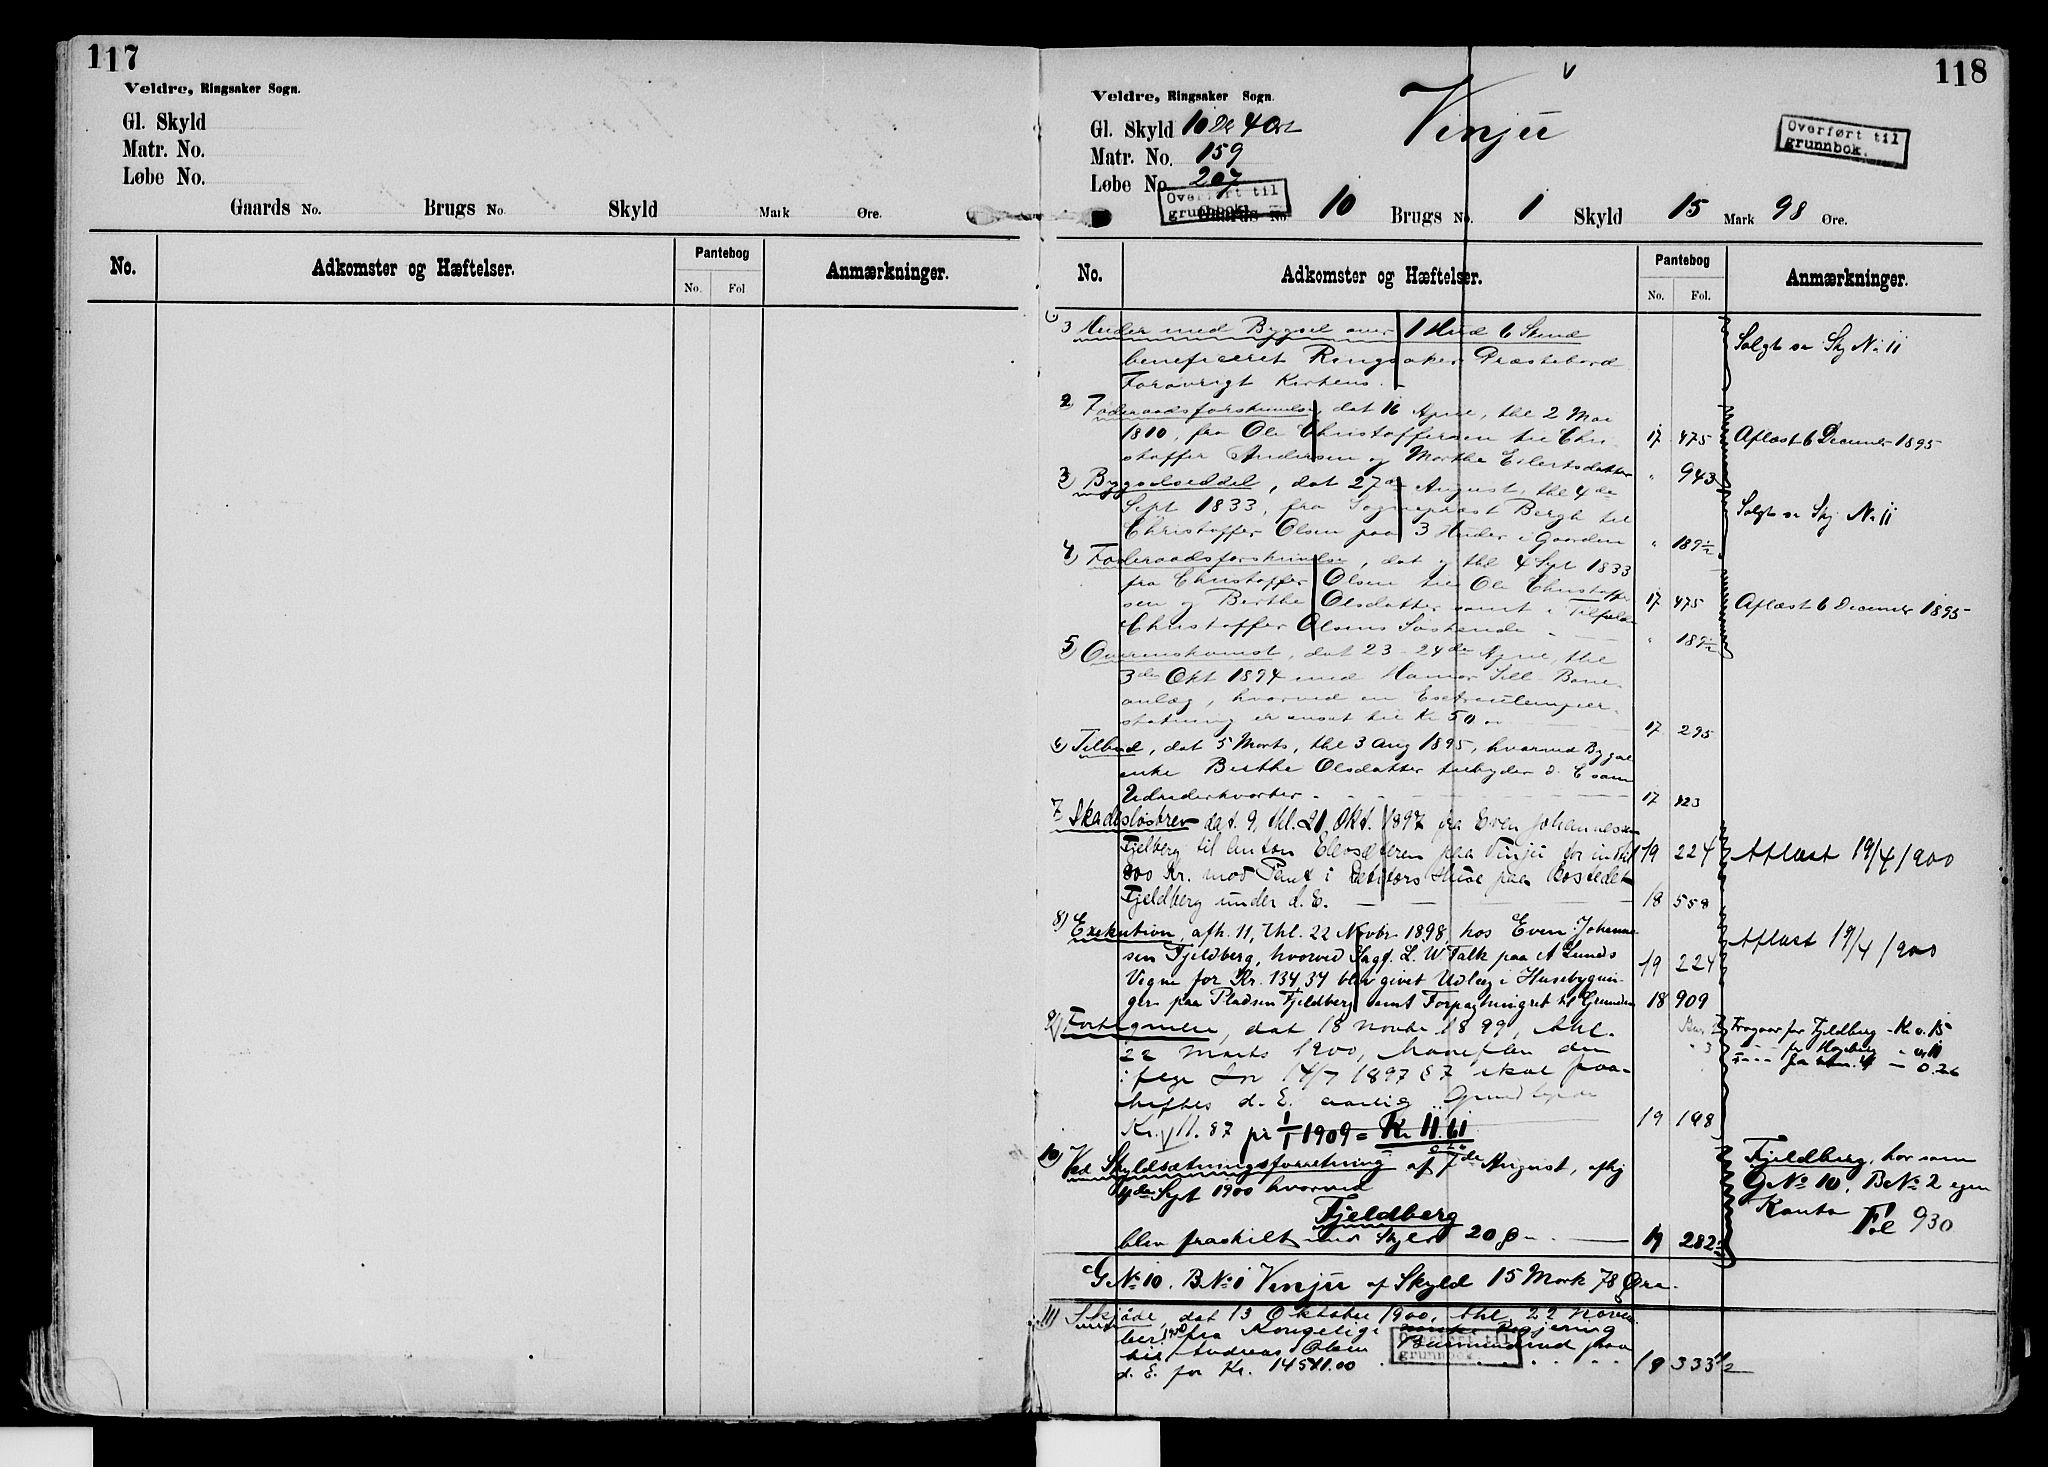 117
Veldre, Ringsaker Sogn.
Gl. Skyld
Matr. No.
Løbe No.
Gaards No. Brugs No. Skyld Mark Øre.
No. Adkomster og Hæftelser. Pantebog No. Fol Anmærkninger.
118
Veldre, Ringsaker Sogn.
Vinju
Overført til
grunnbok.
Gl. Skyld 10 Dl 4 Ort
Matr. No. 159
Løbe No. 207
Overført til
grunnbok.
Gaards No. 10 Brugs No. 1 Skyld 15 Mark 98 Øre.
No. Adkomster og Hæftelser. Pantebog No. Fol. Anmærkninger.
3 Huder med Bygsel over 1 Hud 6 Skind
beneficeret Ringsaker Præstebord
Forøvrigt Kirkens.
Solgt se Skj No 11
2) Føderaadsforskrivelse, dat 16 April, thl 2 Mai
1810, fra Ole Christoffersen til Chri- 17 475 Aflæst 6 December 1895
stoffer Andersen og Marthe Eilertsdatter " 943
3) Bygselseddel, dat 27de August, thl 4de
Sept 1833, fra Sogneprest Bergh til Solgt se Skj No 11
Christoffer Olsen paa 3 Huder i Gaarden " 189 1/2
4) Føderaadsforskrivelse, dat og thl 4 Sept 1833
fra Christoffer Olsen til Ole Christoffer-
sen og Berthe Olsdatter samt i Tilfælde 17 475 Aflæst 6 December 1895
Christoffer Olsens Søskende " 189 1/2
5) Overenskomst, dat 23-24de April, thl
3die Okt 1894 med Hamar Sell Bane-
anlæg, hvorved en
statning er ansat til Kr 50 17 295
6) Tilbud, dat 5 Marts, thl 3 Aug 1895, hvorved Bygsel
enke Berthe Olsdatter tilbyder d. E som
17 423
7 Skadesløsbrev dat. 9, thl. 21 Okt. 1897 fra Even Johannessen
Fjelberg til Anton Elvsæteren paa Vinju for indtil 19 224 Aflæst 19/4 1900
800 Kr. mod Pant i Debitors Huse paa Bostedet
Fjeldberg under d. E. 18 558
8) Exekution, afh. 11, thl. 22 Novbr 1898 hos Even Johannes-
sen Fjeldberg, hvorved Sagf. L. W. Falk paa A Lunds 19 224 Aflæst 19/4 1900
Vegne for Kr. 134.34 blev givet Udlæg i Husebygnin-
ger paa Pladsen Fjeldberg samt Forpagtningret til Grunden 18 909
9) Fortegnelse, dat 18 Novbr 1899, thl.
22 Marts 1900, hvorefter den
ifølge Lov 14/7 1897 § 7 skal paa-
heftes d. E. aarlig Grundleie
Kr. 11.87 pr 1/1 1909 = Kr 11.61 19 198
Fragaar for Fjeldberg - Kr 0.15
- - for Høgberg - 0.11
- - fra 4 - 0.26
10) Ved Skyldsætningsforretning af 7de August, afhj
4de Sept 1900 hvorved
Fjeldberg
blev fraskilt med Skyld 20 Ø 19 282
Fjeldberg, har som
G No 10, B No 2 egen
Konto Fol 930
G No 10. B No 1 Vinju af Skyld 15 Mark 78 Øre.
11) Skjøde, dat 13 Oktober 1900, thl 22 Novem-
ber 1900 fra Kongelige norske Regjering
til Andreas Olsen paa
d. E. for Kr. 14511.00 19 333 1/2
Overført til
grunnbok.